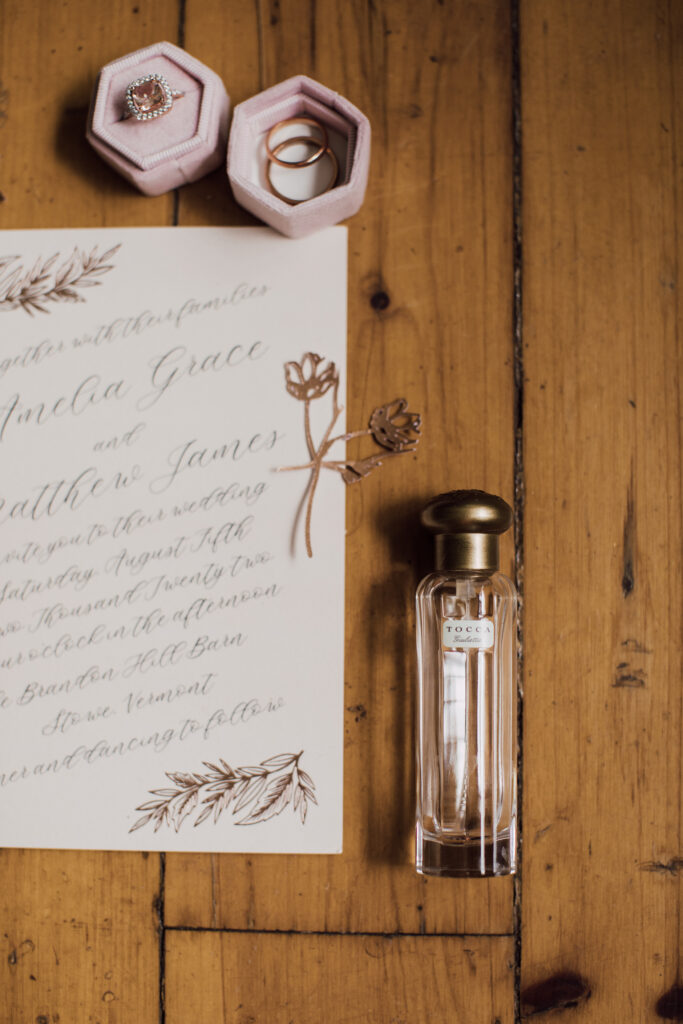 ogether with their families
Amelia Grace
and
Matthew James
vite you to their wedding
Saturday, August Fifth
wo Thousand Twenty two
ur o'clock in the afternoon
e Brandon Hill Barn
Stowe, Vermont
ner and dancing to follow
TOCCA
Giulietta